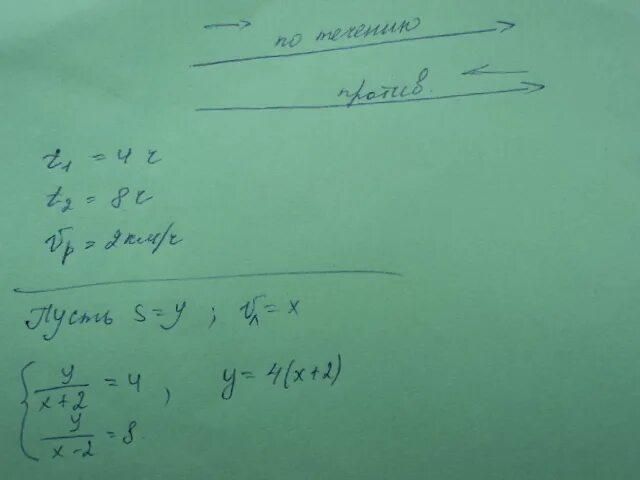 по течению
против.
t₁ = 4 ч
t₂ = 8 ч
Vр = 2 км/ч
Пусть S = y ; Vл = x
{ y/(x+2) = 4 , y = 4(x+2)
y/(x-2) = 8.